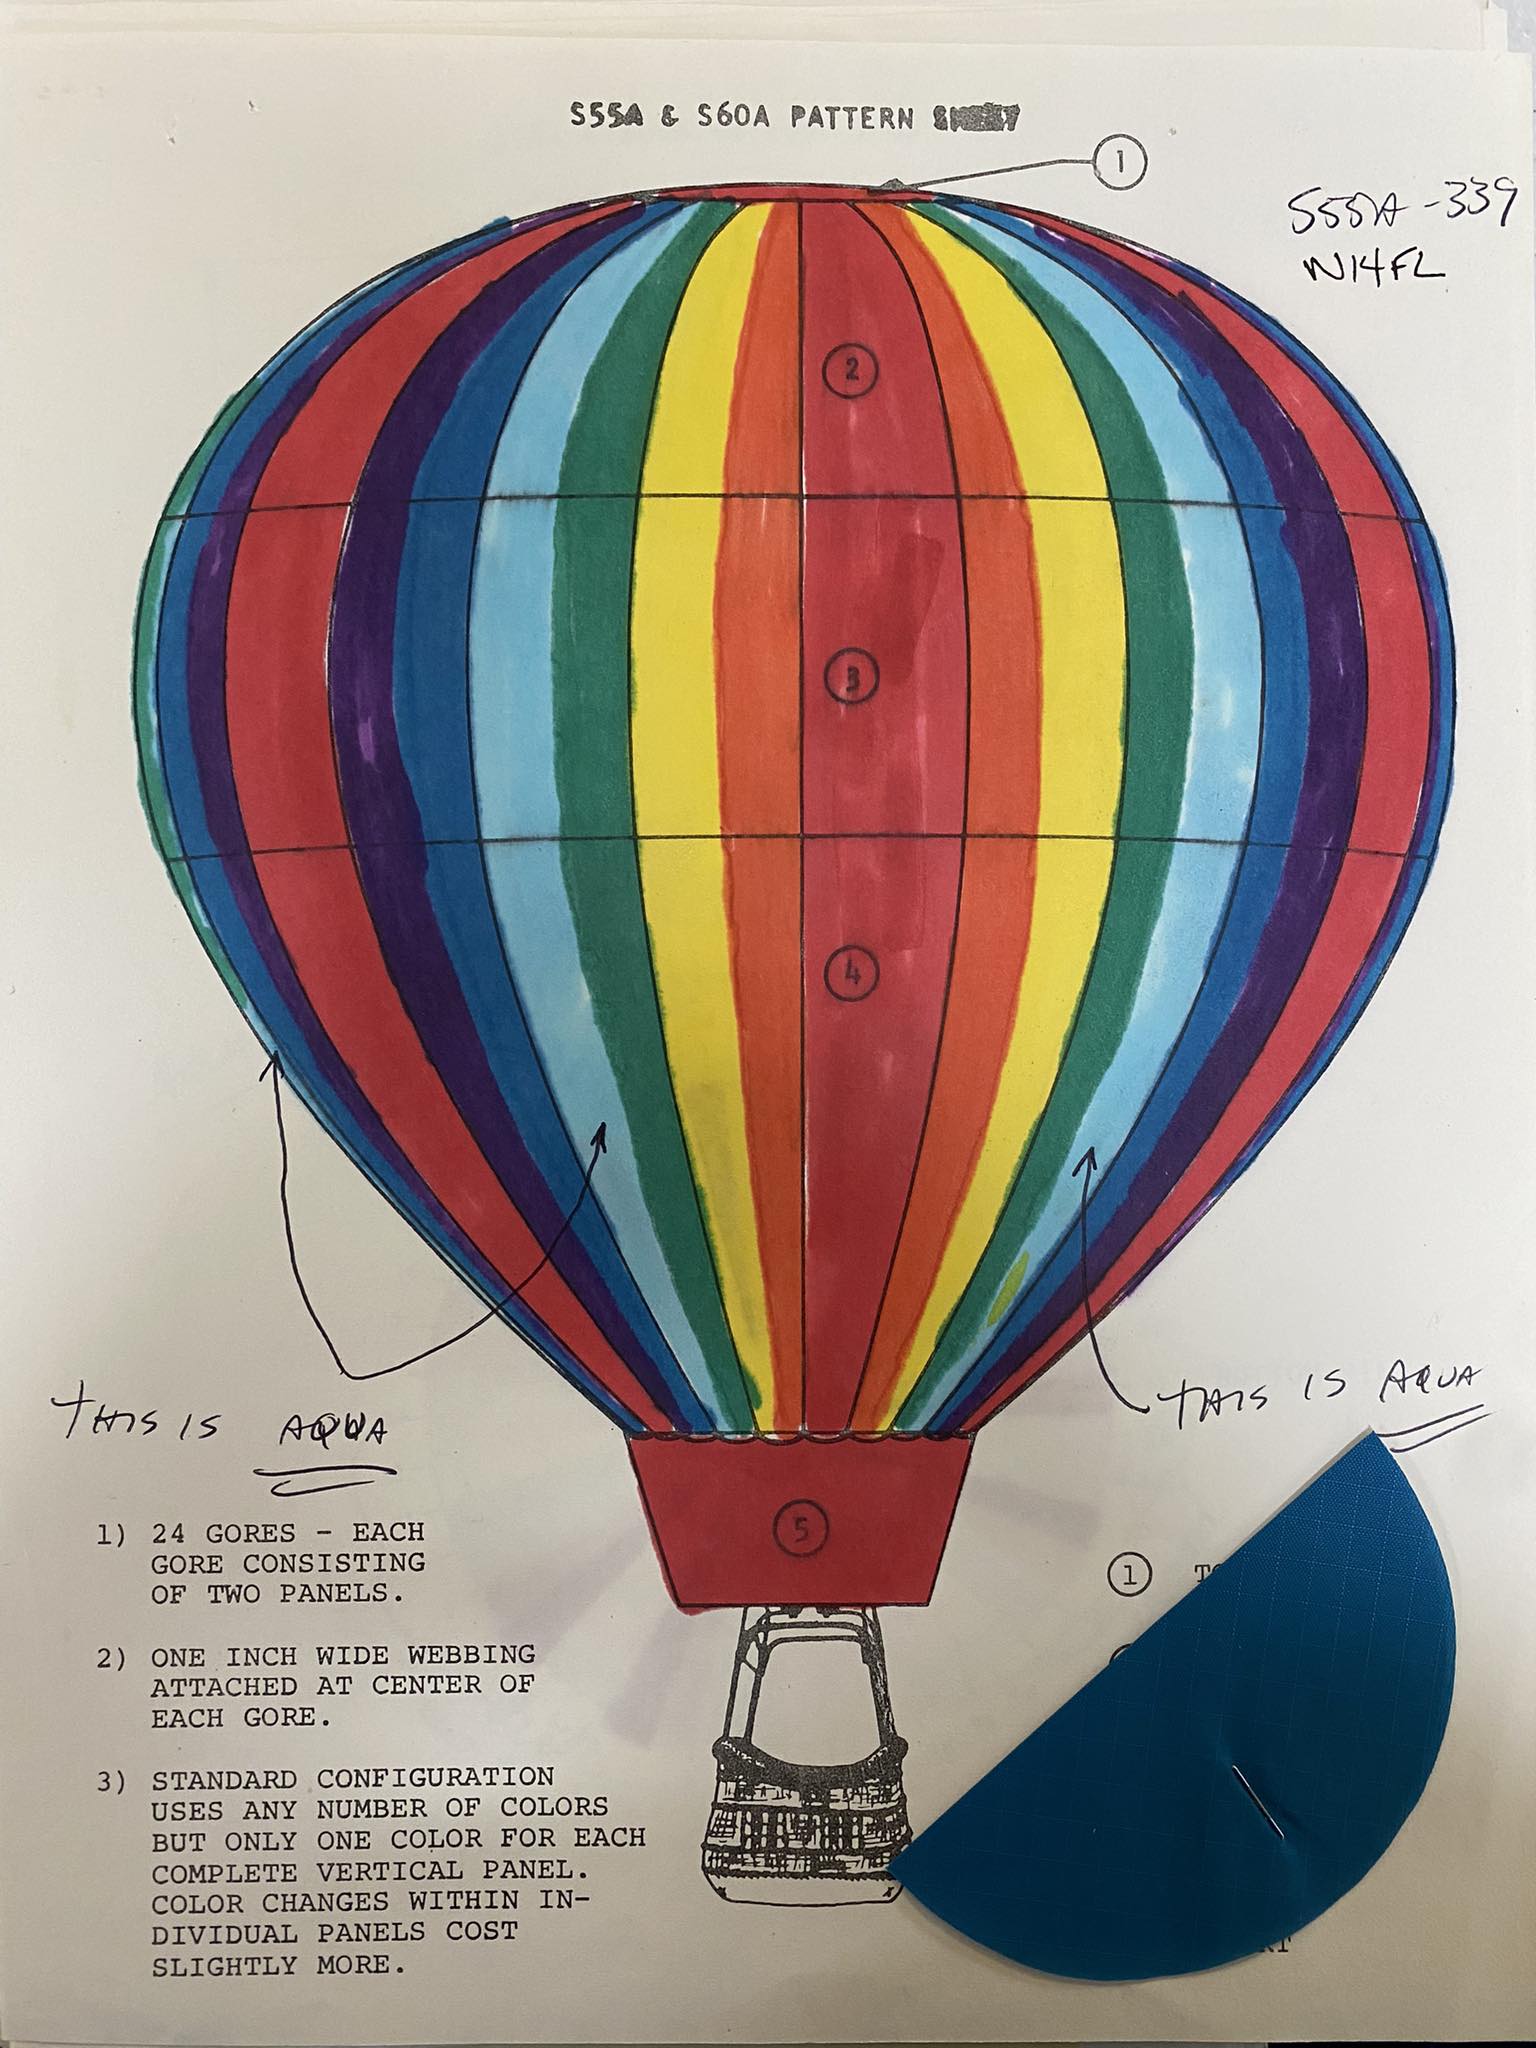 S55A & S60A PATTERN
1
S55A-339
N14FL
2
3
4
THIS IS AQUA
THIS IS AQUA
5
1) 24 GORES - EACH
GORE CONSISTING
OF TWO PANELS.
2) ONE INCH WIDE WEBBING
ATTACHED AT CENTER OF
EACH GORE.
3) STANDARD CONFIGURATION
USES ANY NUMBER OF COLORS
BUT ONLY ONE COLOR FOR EACH
COMPLETE VERTICAL PANEL.
COLOR CHANGES WITHIN IN-
DIVIDUAL PANELS COST
SLIGHTLY MORE.
1